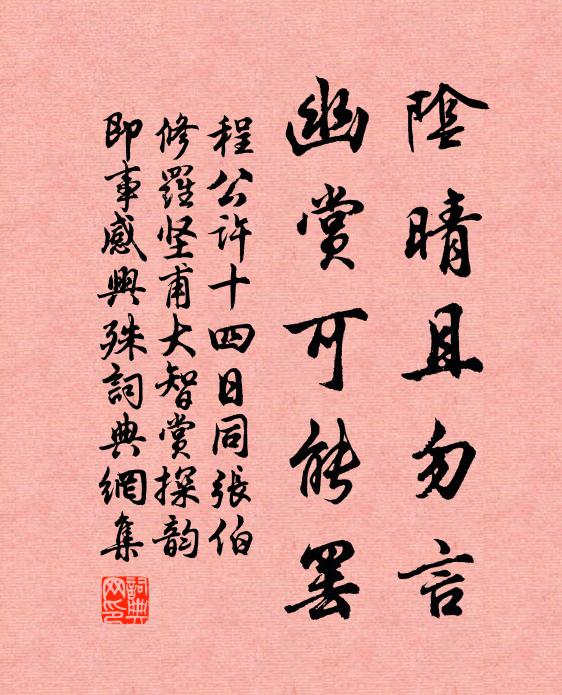 陰晴且勿言
幽賞可能罷
程公許十四日同張伯
修羅坚甫大智賞探韵
即事感興殊詞典網集
詞典网印